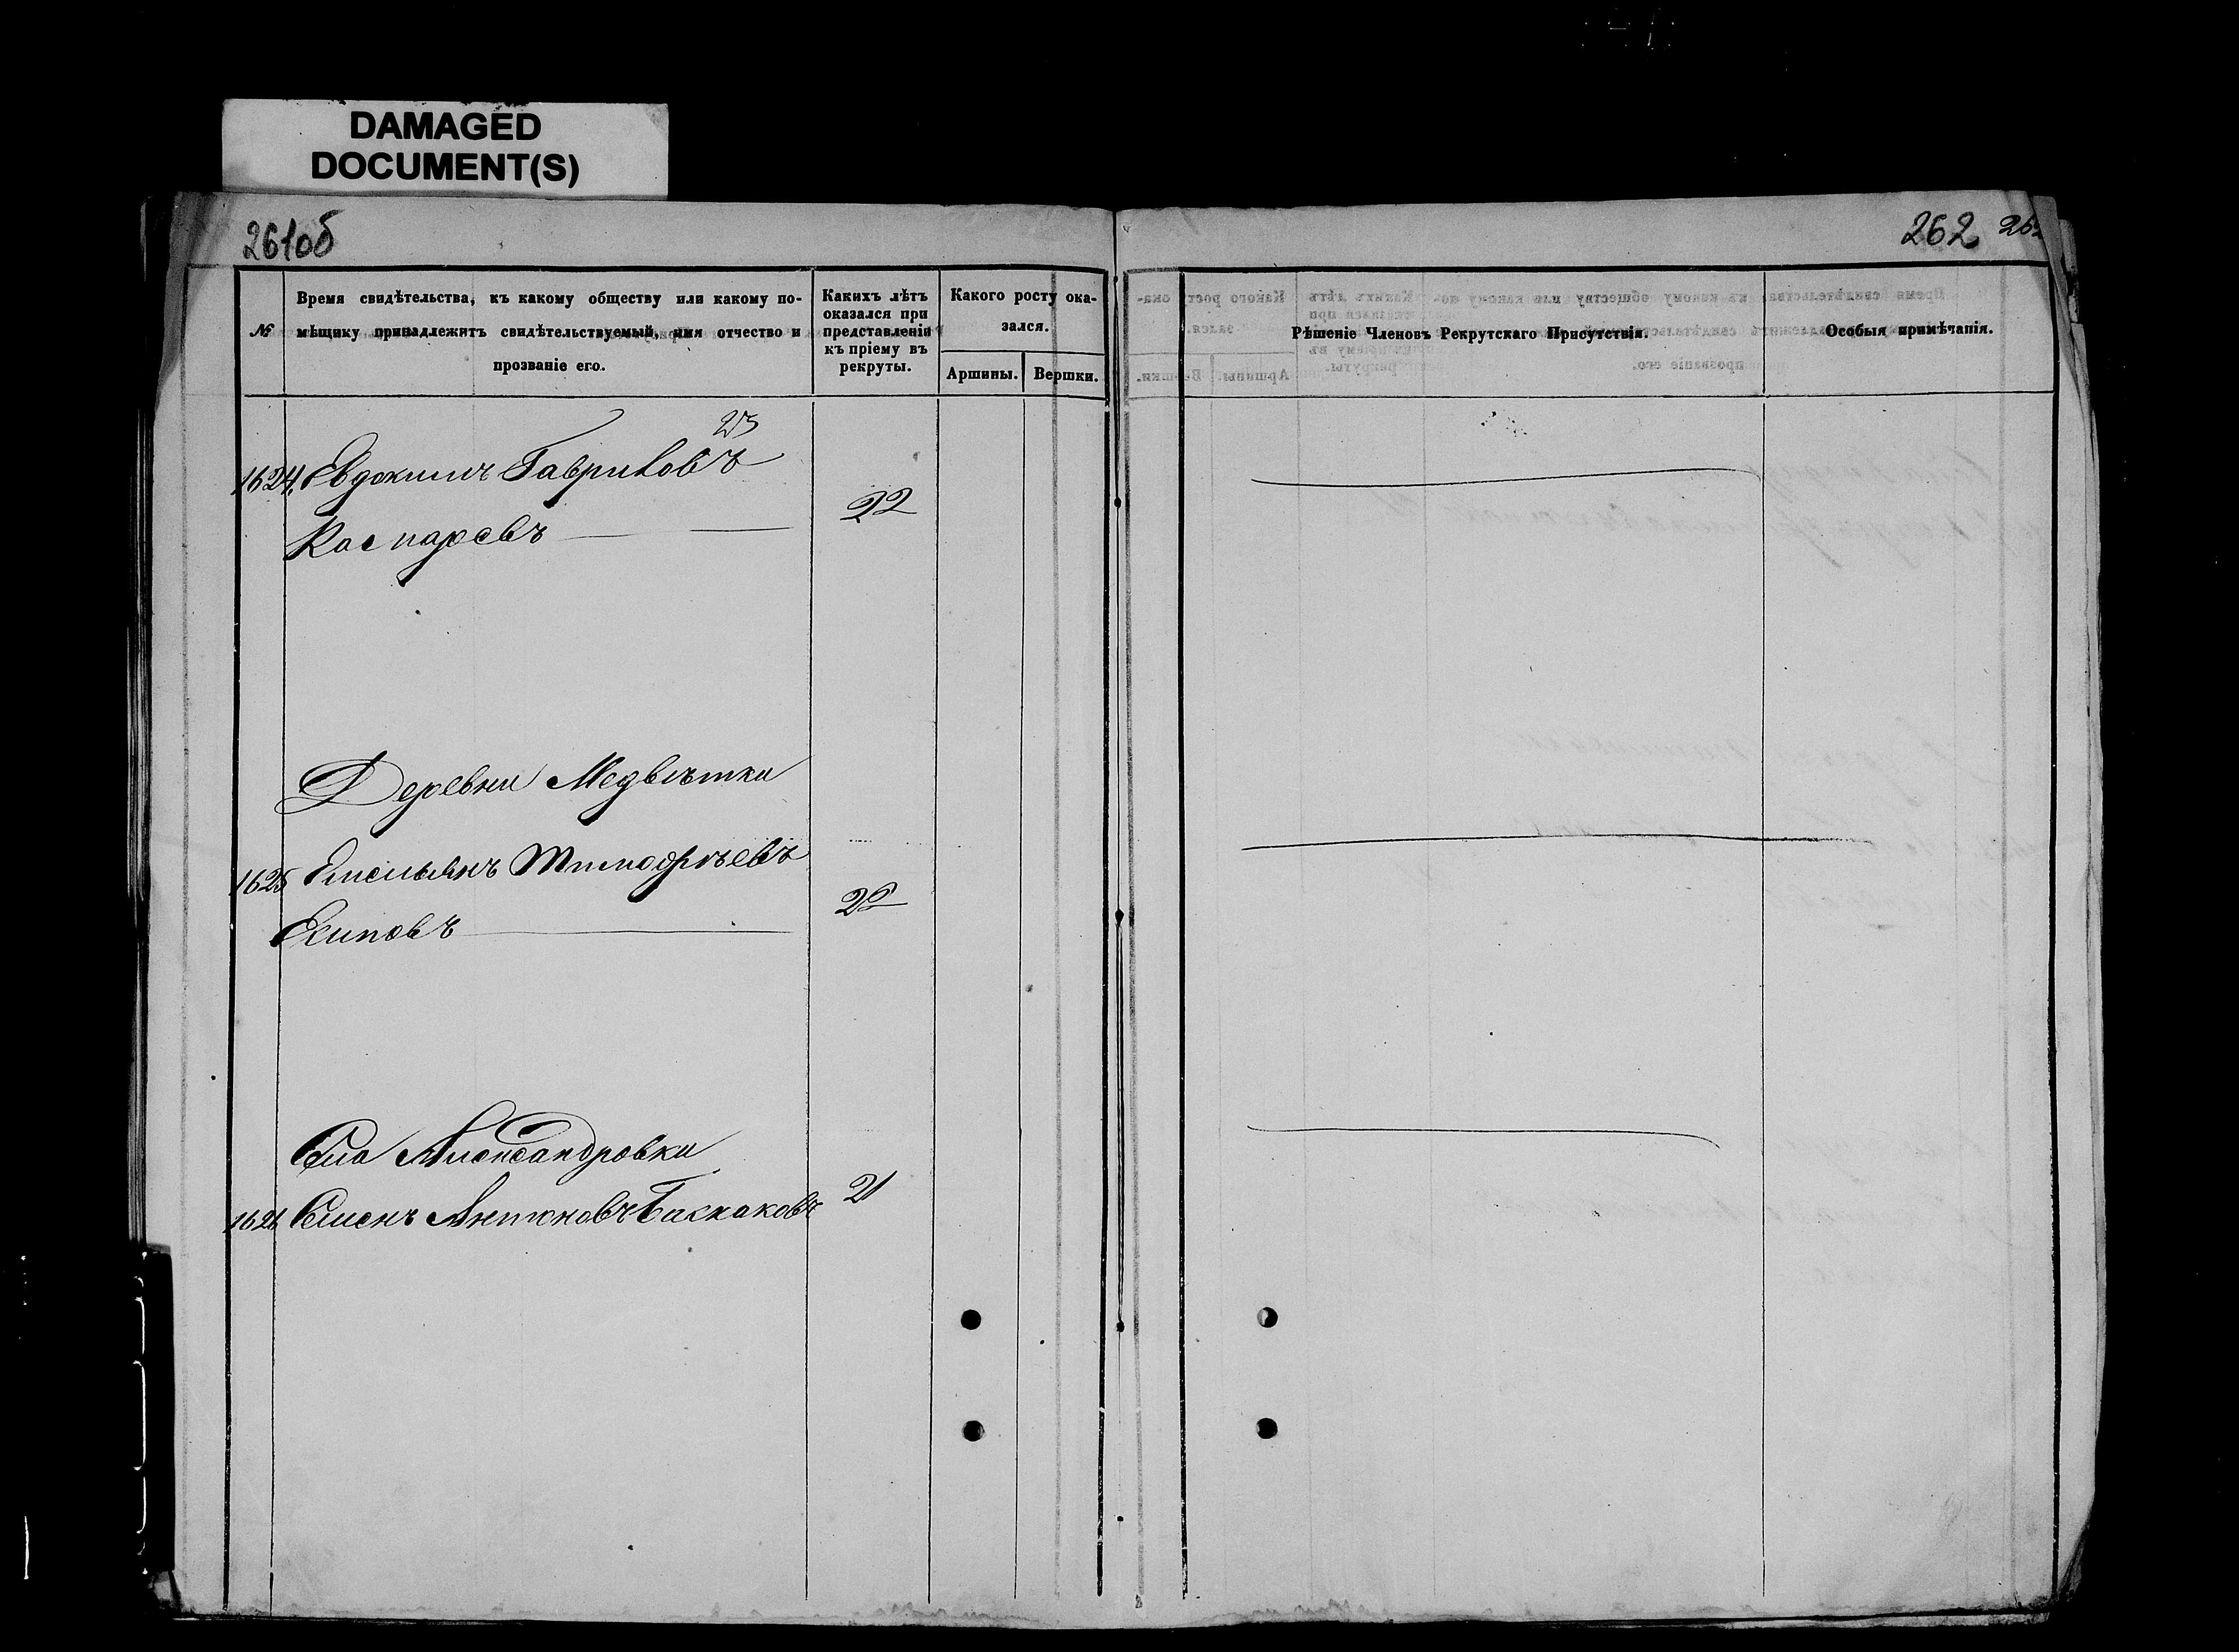 DAMAGED
DOCUMENT(S)
261об
262
№
Время свидѣтельства, къ какому обществу или какому по-
мѣщику принадлежитъ свидѣтельствуемый, имя отчество и
прозваніе его.
Какихъ лѣтъ
оказался при
представленіи
къ пріему въ
рекруты.
Какого росту ока-
зался.
Аршины.
Вершки.
Рѣшеніе Членовъ Рекрутскаго Присутствія.
Особыя примѣчанія.
1624. Евдокимъ Гавриловъ
22
Деревни Медвѣтки
1625 Емельянъ Тимофѣевъ
Есиповъ
22
Села Александровки
1626 Семенъ Антоновъ Баскаковъ 21